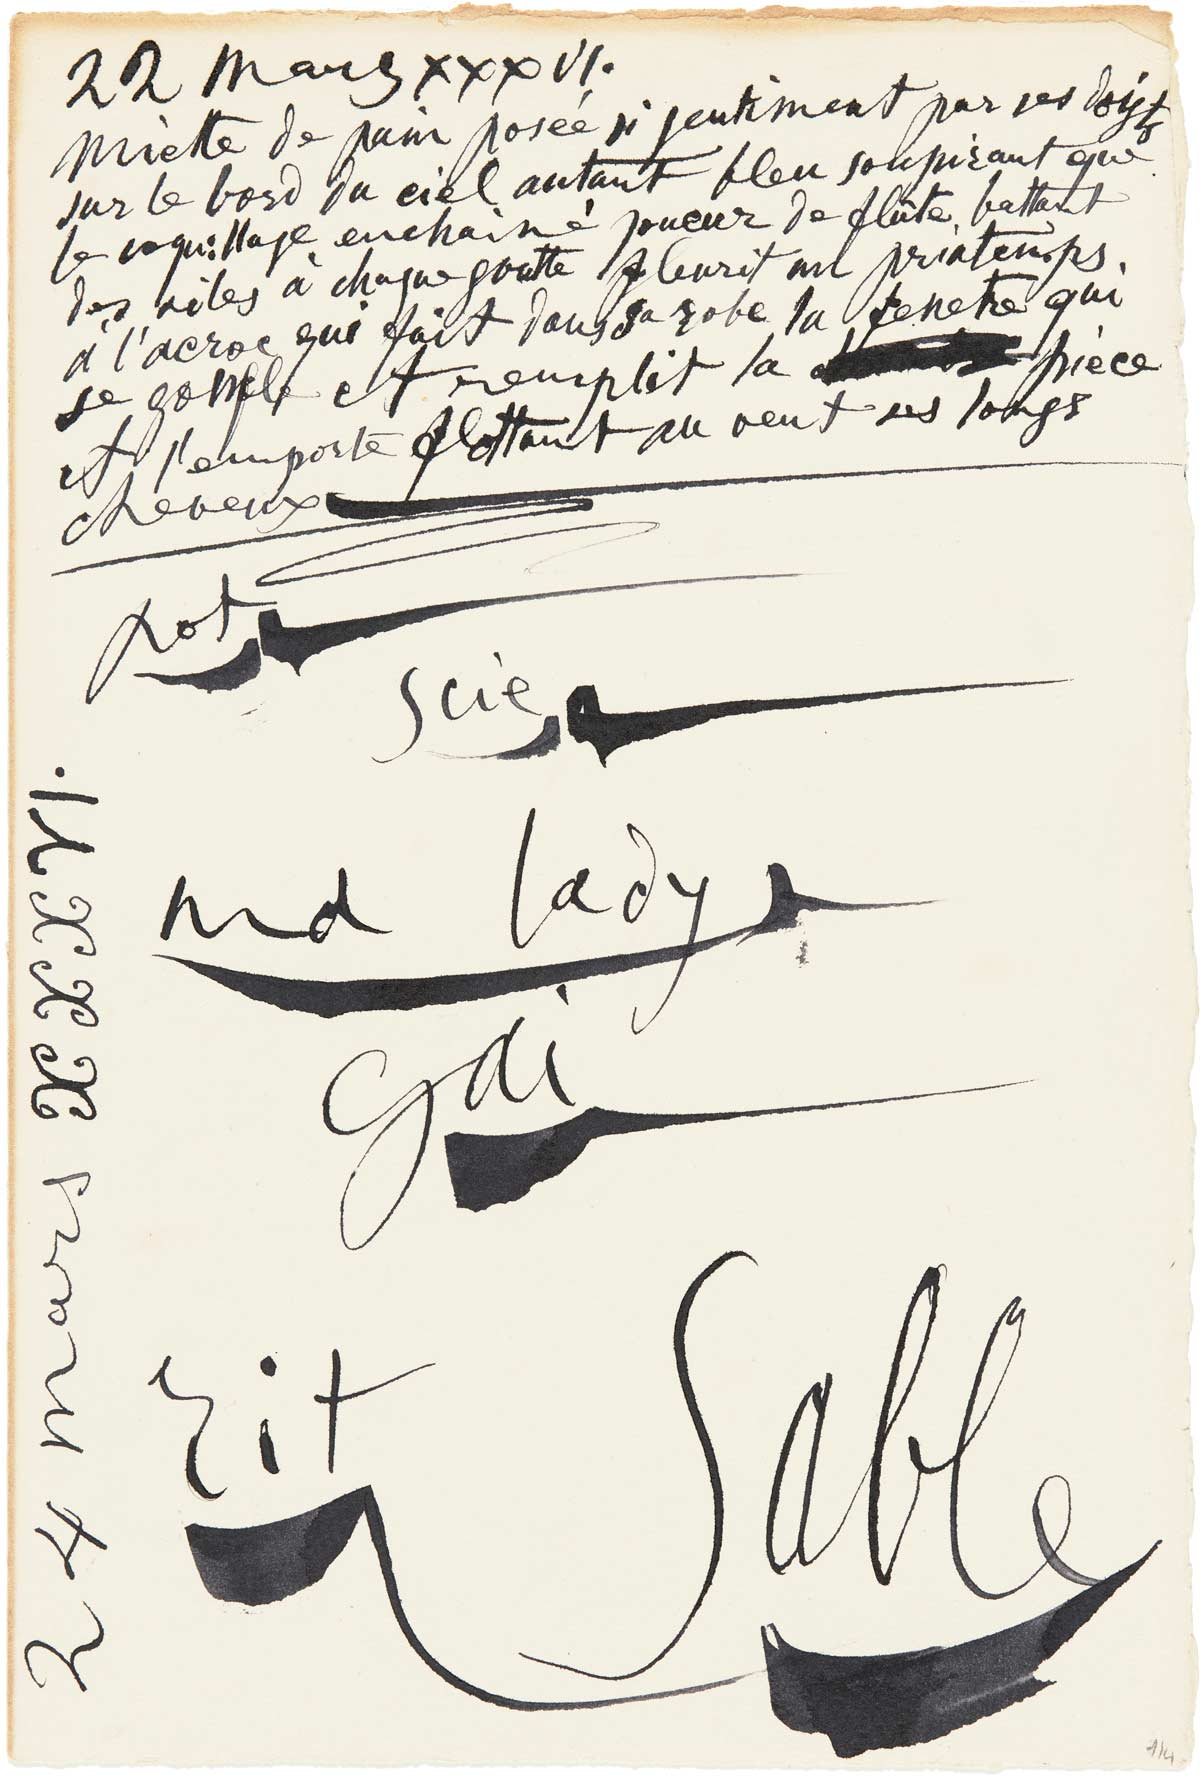 22 Mars XXXVI.
miette de pain posée si gentiment par ses doigts
sur le bord du ciel autant bleu soupirant que
le coquillage enchainé joueur de flûte battant
des ailes à chaque goutte fleurit un printemps.
à l'acroc qui fait dans sa robe la fenetre qui
se gonfle et remplit la pièce
et l'emporte flottant au vent ses longs
cheveux
pot
scie
ma lady
gai
rit Sable
24 mars XXXVI.